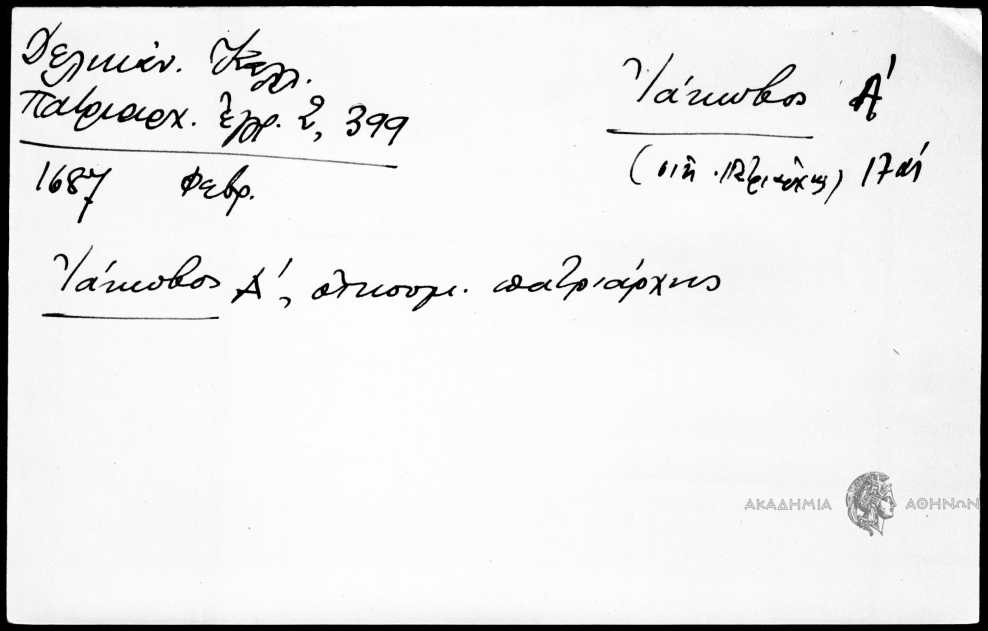 Δελικάν. Καλλ.
Πατριαρχ. ἔγγρ. 2, 399
1687 Φεβρ.
Ἰάκωβος Α'
(οἰκ. πατριάρχης) 17 αἰ
Ἰάκωβος Α', οἰκουμ. πατριάρχης
ΑΚΑΔΗΜΙΑ ΑΘΗΝΩΝ